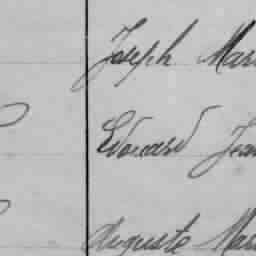 Joseph Mar
Edouard Jean
Auguste Mar